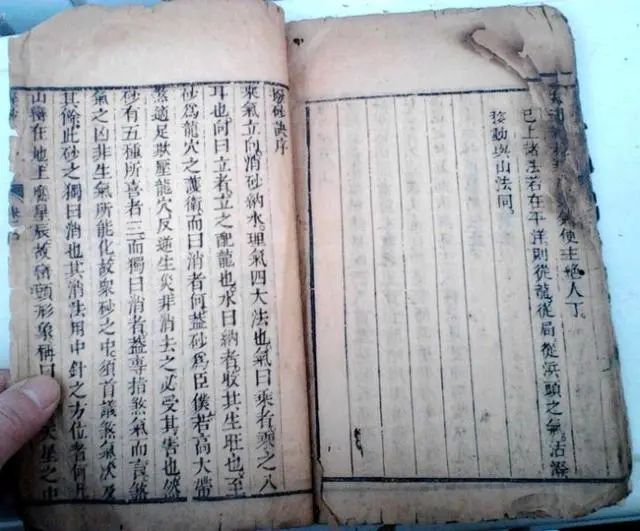 使主絕人丁
已上諸法若在平洋則從龍從局從浜頭之氣活潑
移動與山法同
砂訣序
來氣立向消砂納水理氣四大法也氣曰乘者乘之入
耳也向曰立者立之配龍也水曰納者收其生旺也至
砂爲龍穴之護衛而曰消者何蓋砂爲臣僕若高大帶
煞適足欺壓龍穴反逆生災非消去之必受其害也然
砂有五種所喜者三而獨曰消者蓋專指煞氣而言煞
氣之凶非生氣所能化故衆砂之中須首議煞氣次及
其餘此砂之獨曰消也其消法用中針之方位者何且
山峙在地上應星辰故巒頭形象稱曰天星之中